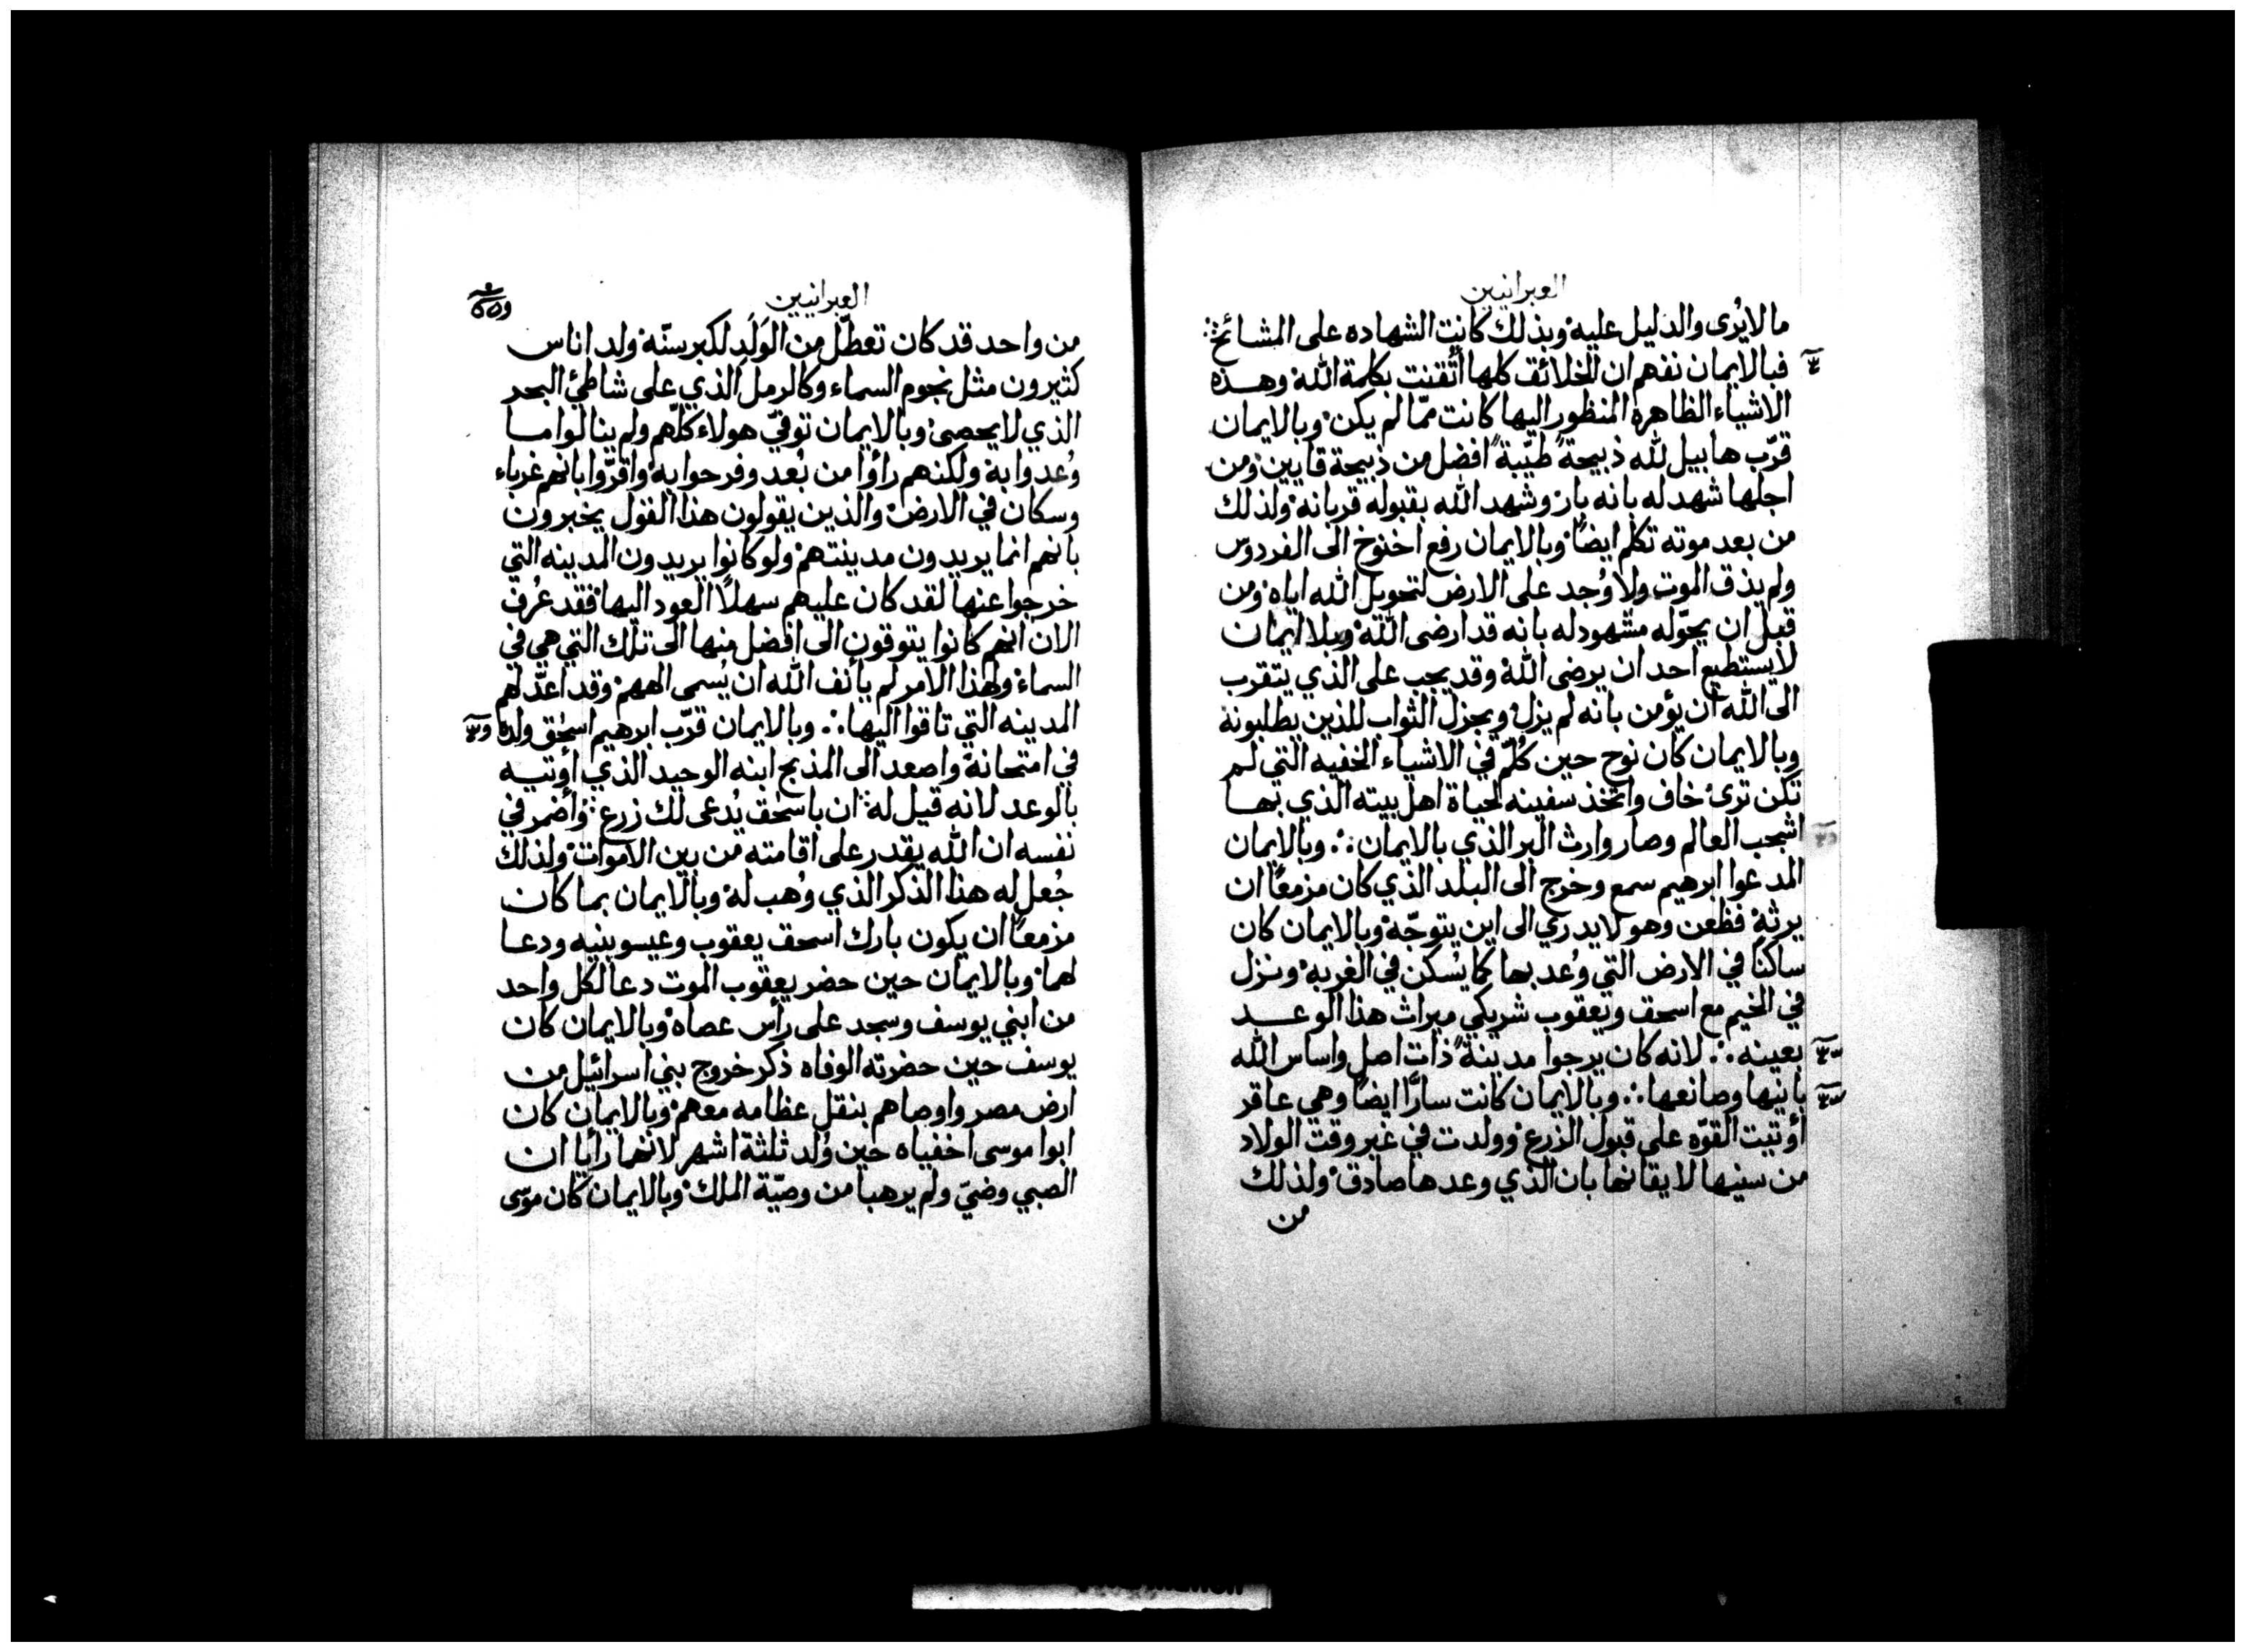 العبرانيين
ما لا يُرى والدليل عليه وبذلك كانت الشهاده على المشائخ
فبالايمان نفهم ان الخلائق كلها أتقنت بكلمة الله وهذه
الاشياء الظاهرة المنظور اليها كانت ممّا لم يكن وبالايمان
قرّب هابيل لله ذبيحةً طيّبةً افضل من ذبيحة قايين ومن
اجلها شهد له بانه بار وشهد الله بقبوله قربانه ولذلك
من بعد موته تكلم ايضًا وبالايمان رفع اخنوخ الى الفردوس
ولم يذق الموت ولا وُجد على الارض لتحويل الله اياه ومن
قبل ان يحوّله مشهود له بانه قد ارضى الله وبلا ايمان
لا يستطيع احد ان يرضى الله وقد يجب على الذي يتقرب
الى الله ان يؤمن بانه لم يزل ويجزل الثواب للذين يطلبونه
وبالايمان كان نوح حين كُلّم في الاشياء الخفيه التي لم
تكن ترى خاف واتخذ سفينه لحياة اهل بيته الذي بها
اشجب العالم وصار وارث البر الذي بالايمان ∴ وبالايمان
المدعوا ابرهيم سمع وخرج الى البلد الذي كان مزمعًا ان
يرثه فظعن وهو لا يدري الى اين يتوجّه وبالايمان كان
ساكنًا في الارض التي وُعد بها كما يُسكن في الغربه ونزل
في الخيم مع اسحق ويعقوب شريكي ميراث هذا الوعد
بعينه ∴ لانه كان يرجوا مدينةً ذات اصل واساس الله
بانيها وصانعها ∴ وبالايمان كانت سارًا ايضًا وهي عاقر
أوتيت القوّه على قبول الزرع وولدت في غير وقت الولاد
من سنيها لايقانها بان الذي وعدها صادق ولذلك
من
العبرانيين
من واحد قد كان تعطّل من الوَلَد لكبر سنّه ولد اناس
كثيرون مثل نجوم السماء وكالرمل الذي على شاطئ البحر
الذي لا يحصى وبالايمان توفيّ هولاء كلّهم ولم ينالوا ما
وُعدوا به ولكنهم رأوا من بُعد وفرحوا به واقرّوا بانهم غرباء
وسكان في الارض والذين يقولون هذا القول يخبرون
بانهم انما يريدون مدينتهم ولو كانوا يريدون المدينه التي
خرجوا عنها لقد كان عليهم سهلًا العود اليها فقد عُرف
الان انهم كانوا يتوقون الى افضل منها الى تلك التي هي في
السماء ولهذا الامر لم يأنف الله ان يُسمى الههم وقد اعدّ لهم
المدينه التي تاقوا اليها ∴ وبالايمان قرّب ابرهيم اسحق ولده
في امتحانه واصعد الى المذبح ابنه الوحيد الذي أوتيه
بالوعد لانه قيل له ان باسحق يُدعى لك زرع وأضمر في
نفسه ان الله يقدر على اقامته من بين الاموات ولذلك
جُعل له هذا الذكر الذي وُهب له وبالايمان بما كان
مزمعًا ان يكون بارك اسحق يعقوب وعيسو بنيه ودعا
لهما وبالايمان حين حضر يعقوب الموت دعا لكل واحد
من ابني يوسف وسجد على رأس عصاه وبالايمان كان
يوسف حين حضرته الوفاه ذكر خروج بني اسرائيل من
ارض مصر واوصاهم بنقل عظامه معهم وبالايمان كان
ابوا موسى اخفياه حين وُلد ثلثة اشهر لانهما رأيا ان
الصبي وضيّ ولم يرهبا من وصيّة الملك وبالايمان كان موسى